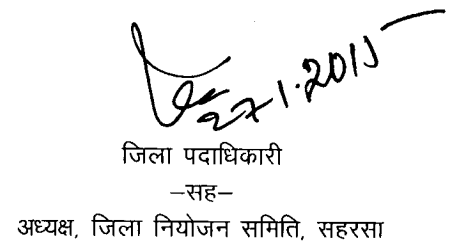 27.1.2015
जिला पदाधिकारी
–सह–
अध्यक्ष, जिला नियोजन समिति, सहरसा